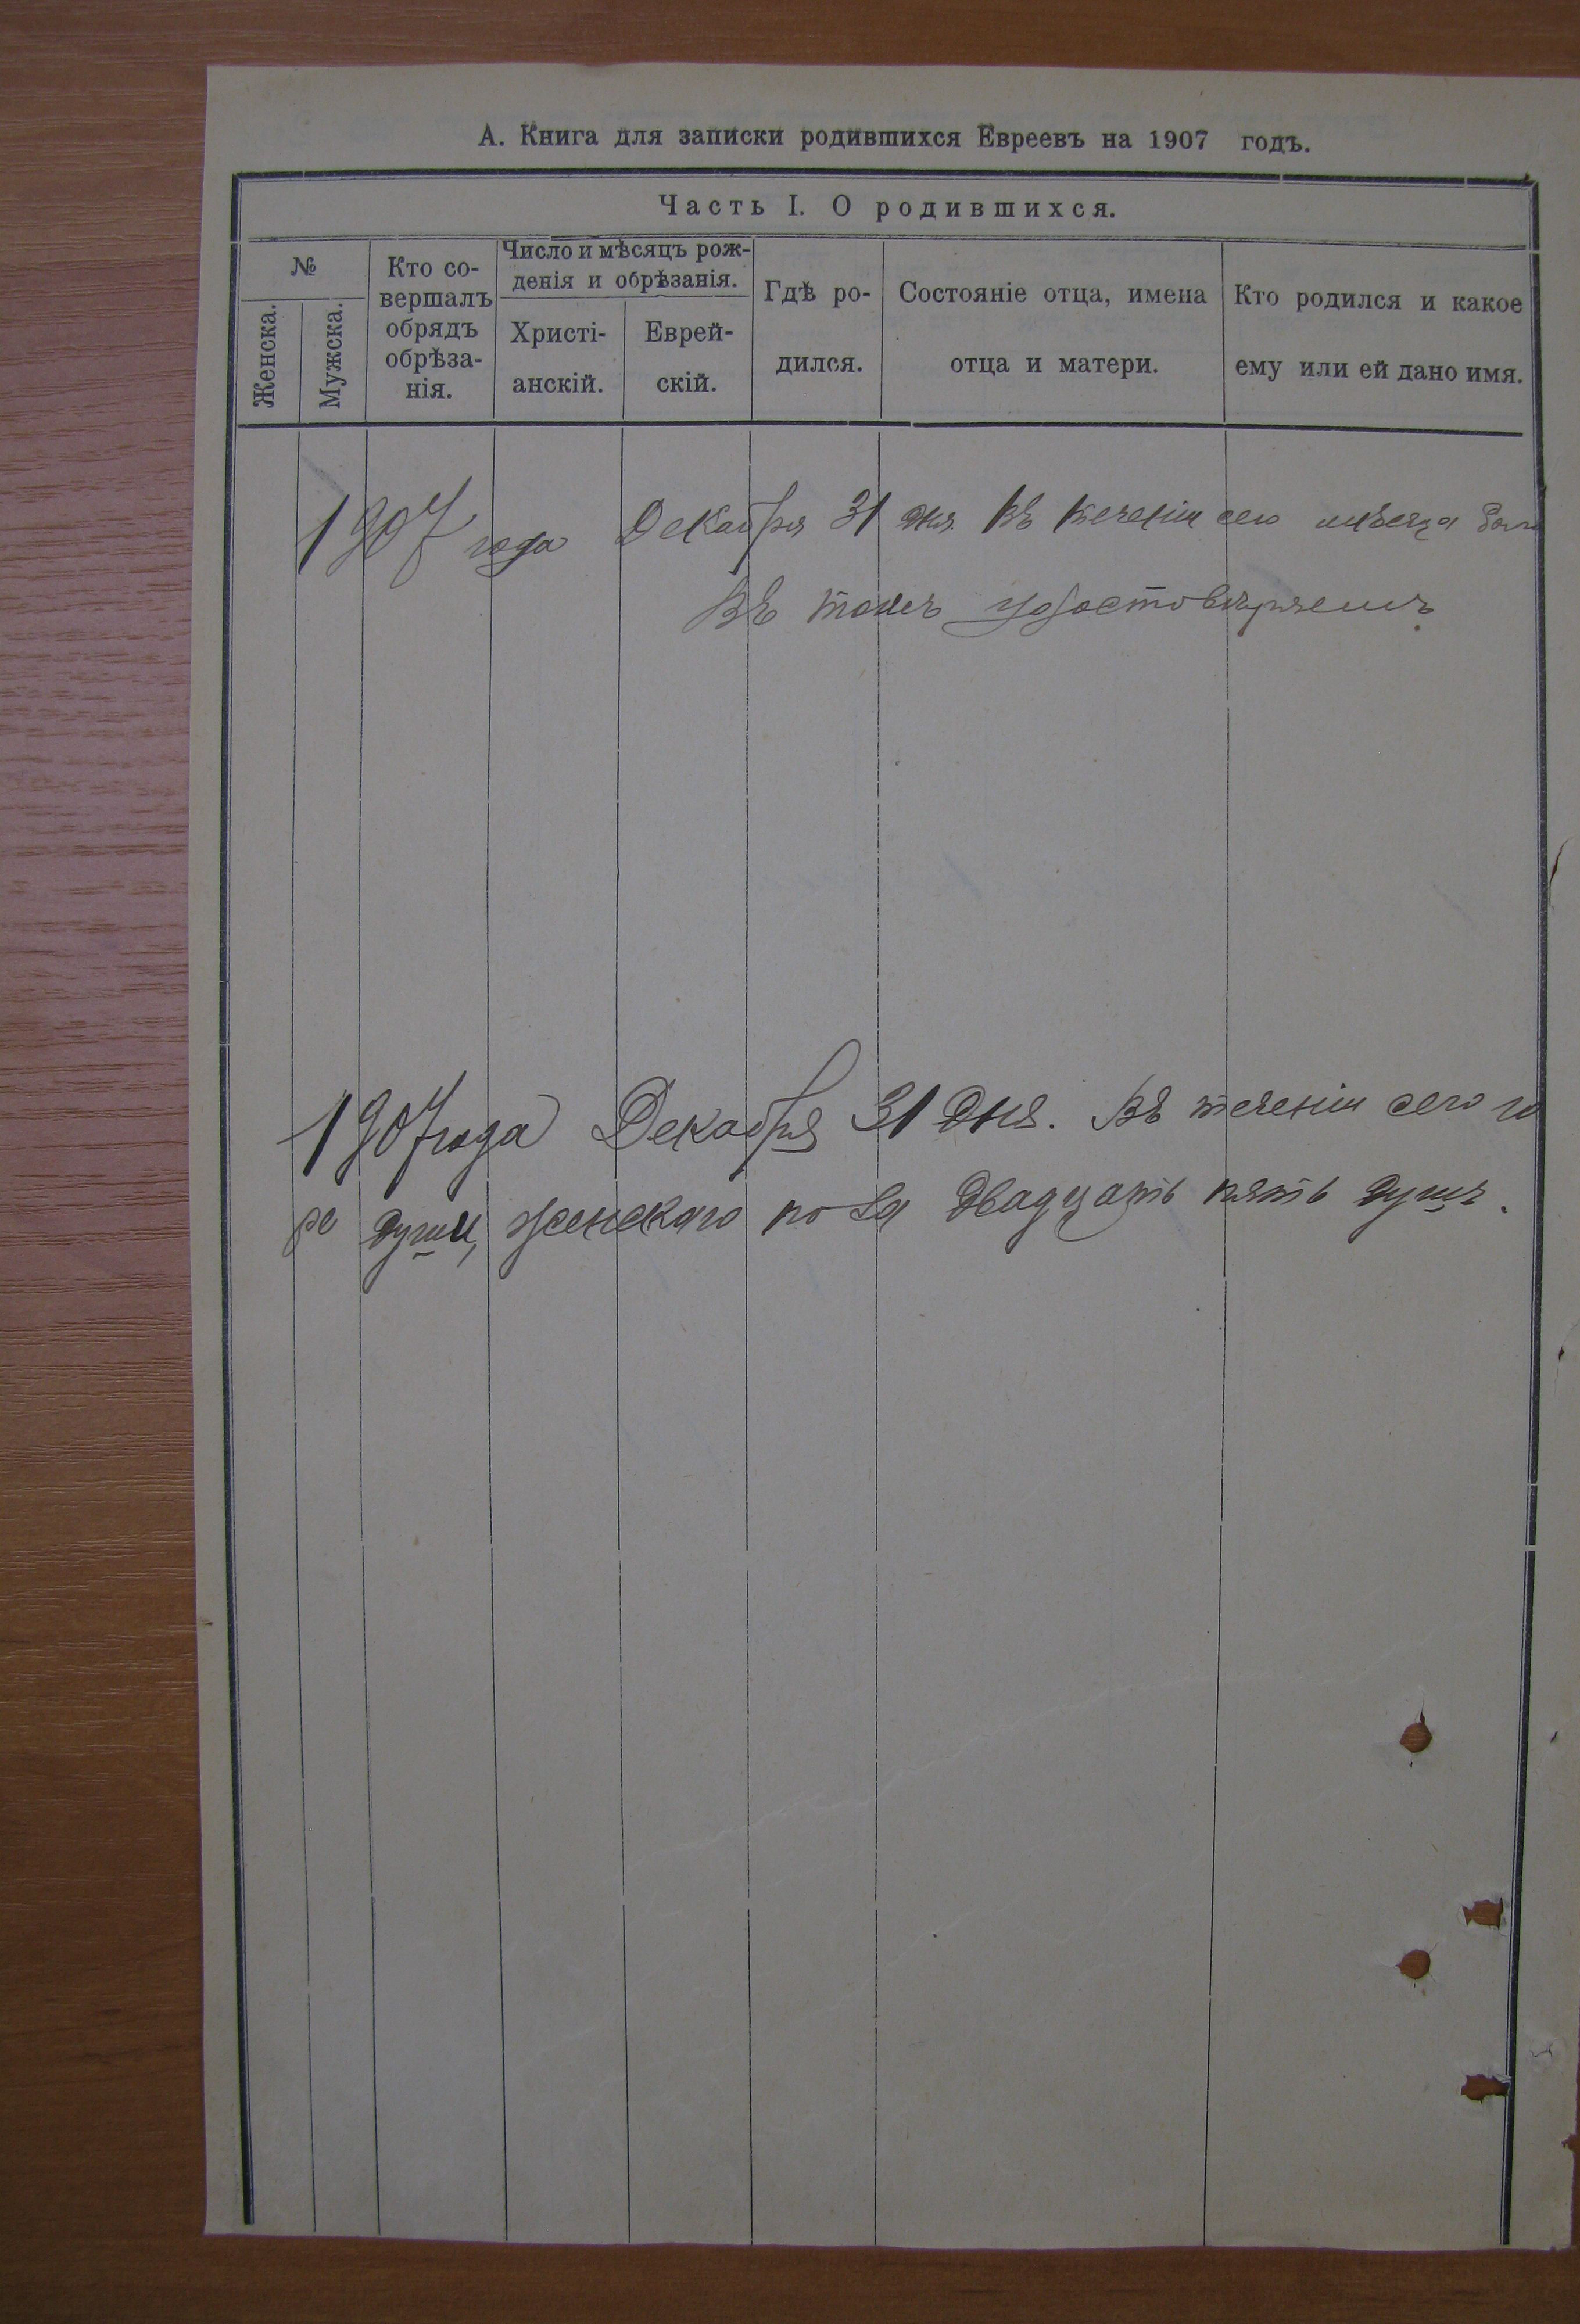 А. Книга для записки родившихся Евреевъ на 1907 годъ.
Часть I. О родившихся.
№
Женска.
Мужска.
Кто со-
вершалъ
обрядъ
обрѣза-
нія.
Число и мѣсяцъ рож-
денія и обрѣзанія.
Христі-
анскій.
Еврей-
скій.
Гдѣ ро-
дился.
Состояніе отца, имена
отца и матери.
Кто родился и какое
ему или ей дано имя.
1907 года Декабря 31 дня. Въ теченіи сего мѣсяца
Въ томъ удостовѣряемъ
1907 года Декабря 31 Дня. Въ теченіи сего го
ре души, женскаго пола двадцать пять душъ.